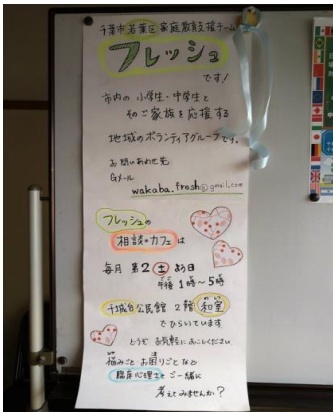 千葉市若葉区家庭教育支援チーム
フレッシュ
です！
市内の小学生・中学生と
そのご家族を応援する
地域のボランティアグループです。
お問いあわせ先
Gメール
wakaba.fresh@gmail.com
フレッシュの
相談カフェは
毎月 第2土よう日
午後 1時～5時
千城台公民館 2階 和室
でひらいています
どうぞ お気軽におこしください
悩みごと お困りごとなど
臨床心理士とご一緒に
考えてみませんか？